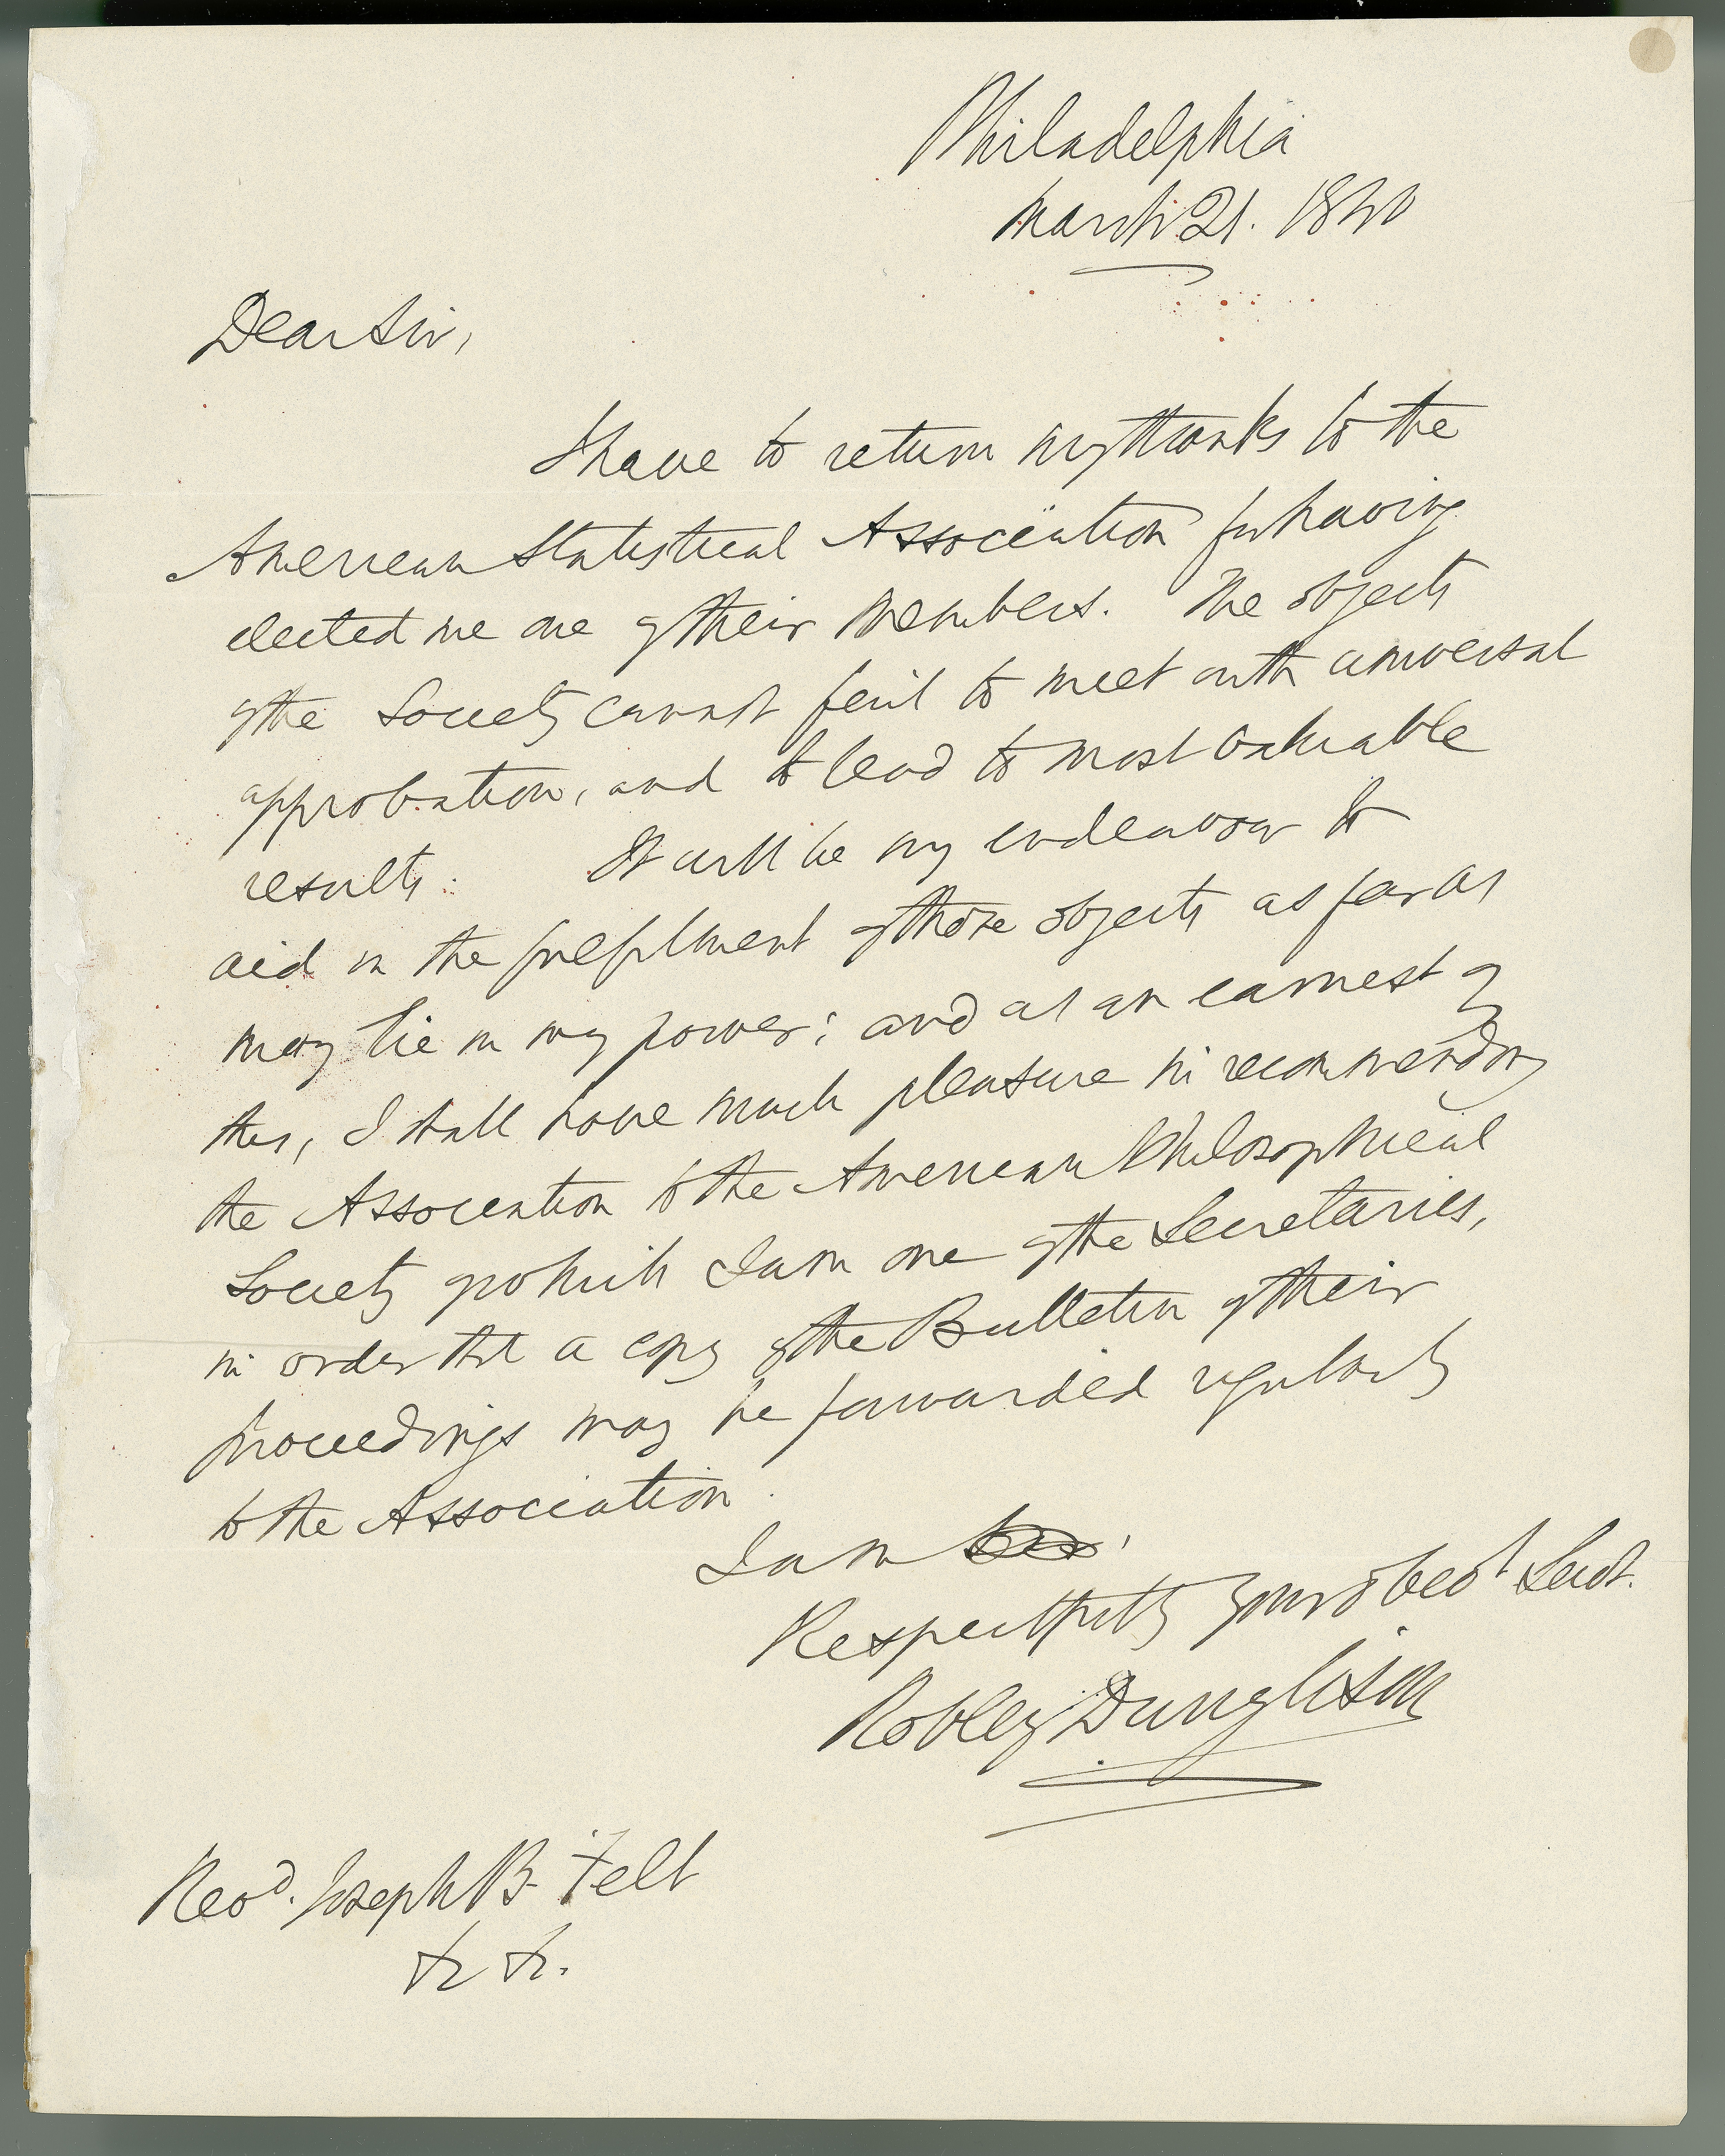 Philadelphia
March 21. 1840
Dear Sir,
I have to return my thanks to the
American Statistical Association for having
elected me one of their Members. The objects
of the Society cannot fail to meet with universal
approbation, and to lead to most valuable
results. It will be my endeavour to
aid in the fulfilment of those objects as far as
may lie in my power; and as an earnest of
this, I shall have much pleasure in recommending
the Association to the American Philosophical
Society of which I am one of the Secretaries,
in order that a copy of the Bulletin of their
proceedings may be forwarded regularly
to the Association.
I am
Respectfully your obedt Servt.
Robley Dunglison
Revd. Joseph B. Felt
&c &c.